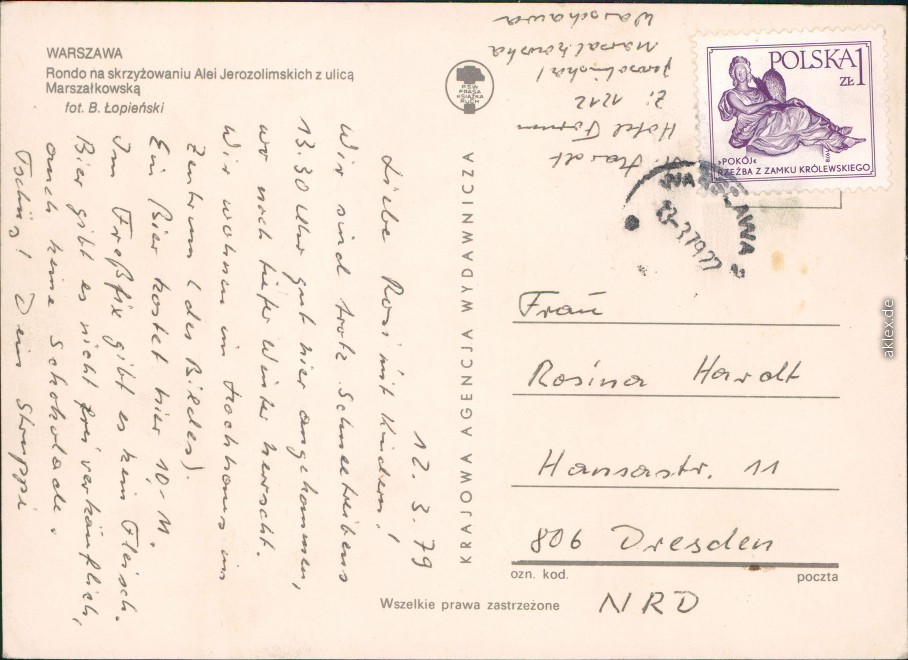 WARSZAWA
Rondo na skrzyżowaniu Alei Jerozolimskich z ulicą
Marszałkowską
fot. B. Łopieński
PSW
PRASA
KSIĄŻKA
RUCH
KRAJOWA AGENCJA WYDAWNICZA
12. 3. 79
Liebe Rosi mit Kindern!
Wir sind trotz Schneetreibens
13.30 Uhr gut hier angekommen,
wo noch tiefer Winter herrscht.
Wir wohnen im Hochhaus im
Zentrum (des Bildes).
Ein Bier kostet hier 10,- M.
Im Freßfix gibt es kein Fleisch.
Bier gibt es nicht frei verkäuflich,
auch keine Schokolade.
Tschüß! Dein Struppi
Hardt
Hotel Forum
Z: 1212
Jerosolimska /
Marszalkowska
Warschawa
POLSKA 1
ZŁ
»POKÓJ«
RZEŹBA Z ZAMKU KRÓLEWSKIEGO
WARSZAWA 2
13-3.79.22
Frau
Rosina Hardt
Hansastr. 11
806 Dresden
ozn. kod. poczta
NRD
Wszelkie prawa zastrzeżone
aklex.de